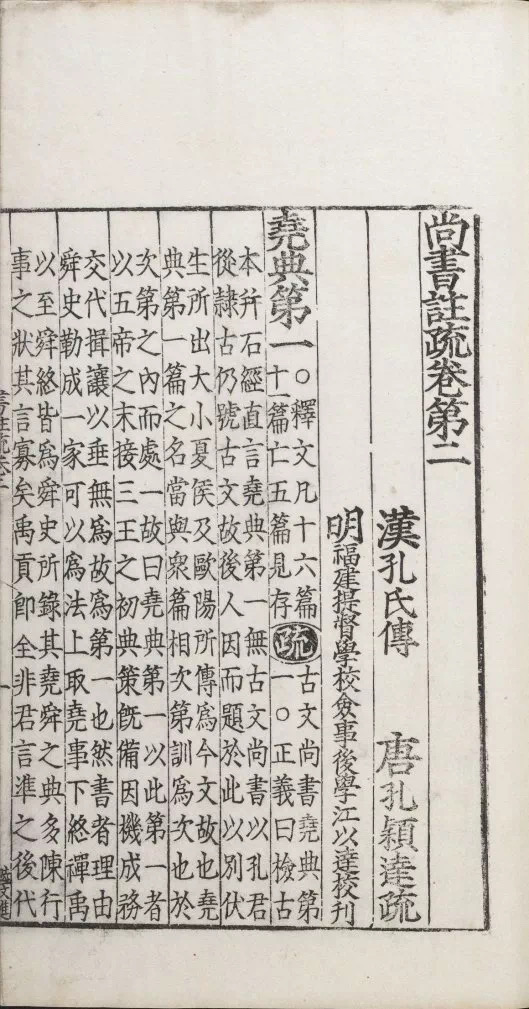 尚書註疏卷第二
漢孔氏傳　唐孔穎達疏
明福建提督學校僉事後學江以達校刊
堯典第一
○釋文凡十六篇
十一篇亡五篇見存
疏
古文尚書堯典第
一○正義曰檢古
本幷石經直言堯典第一無古文尚書以孔君
從隷古仍號古文故後人因而題於此以別伏
生所出大小夏侯及歐陽所傳爲今文故也堯
典第一篇之名當與衆篇相次第訓爲次也於
次第之內而處一故曰堯典第一以此第一者
以五帝之末接三王之初典策旣備因機成務
交代揖讓以垂無爲故爲第一也然書者理由
舜史勒成一家可以爲法上取堯事下終禪禹
以至舜終皆爲舜史所錄其堯舜之典多陳行
事之狀其言寡矣禹貢卽全非君言準之後代